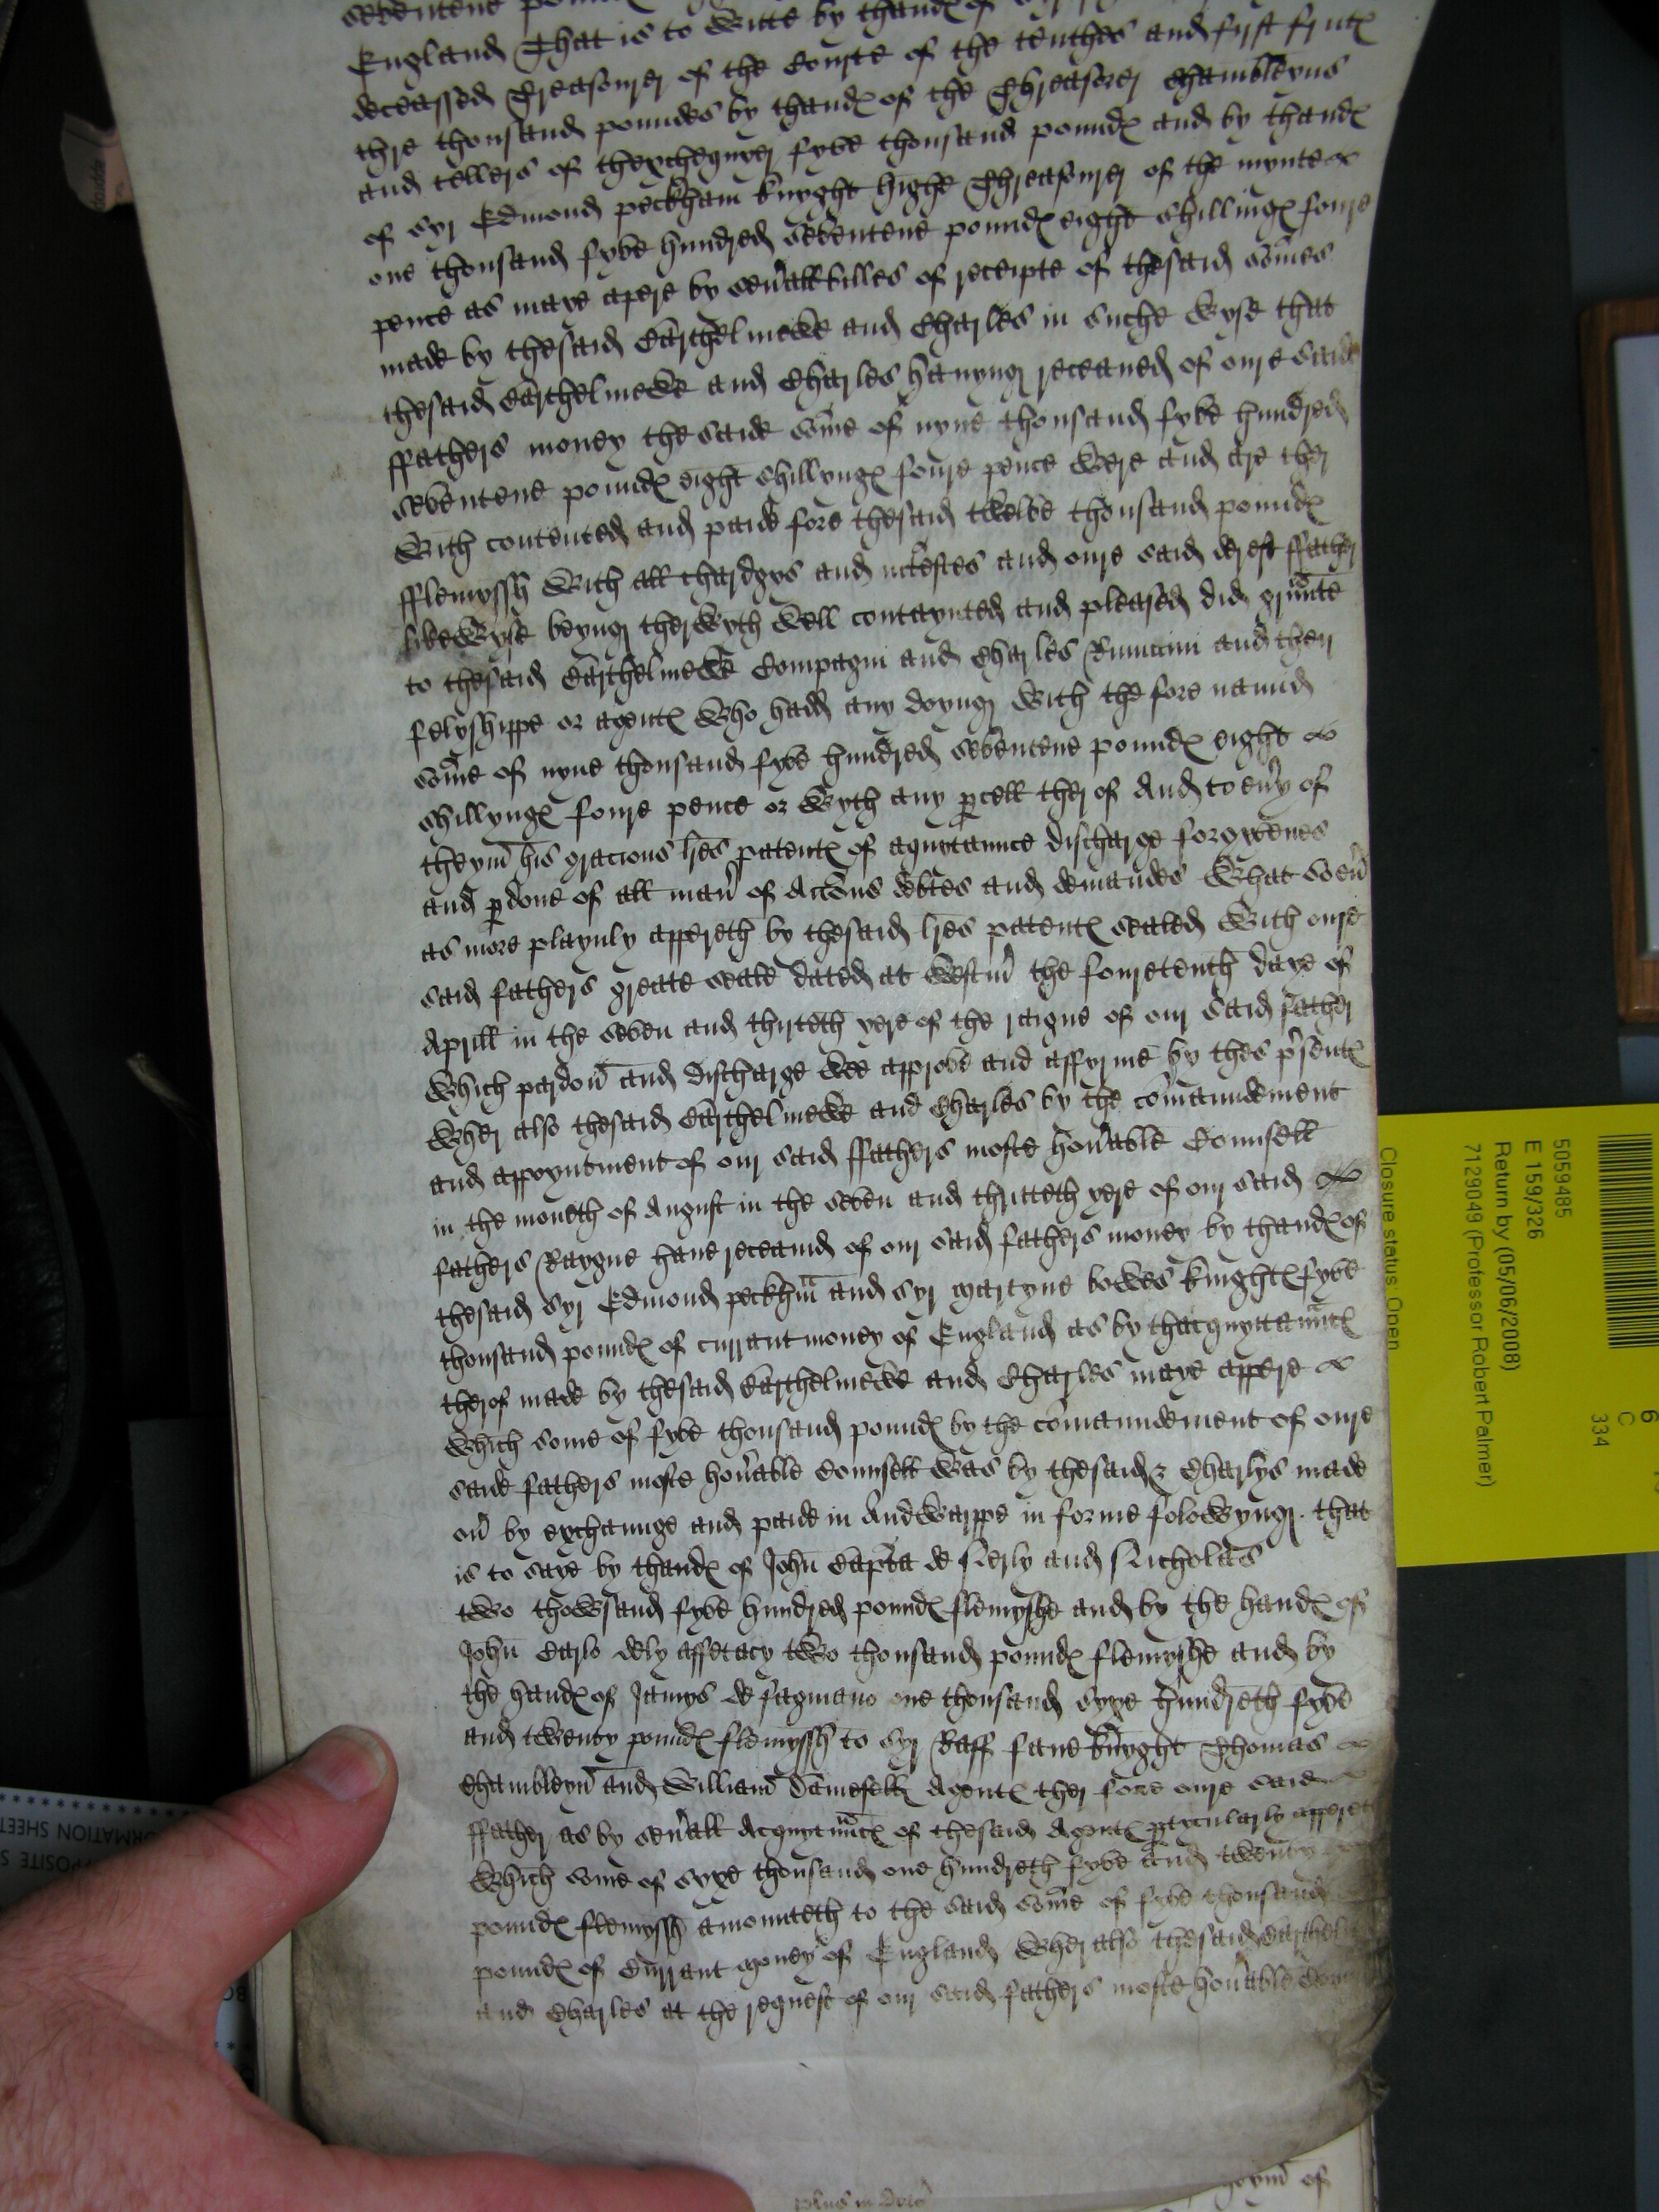 sebentene
England That is to witte by thandes of
deceassed Treasourer of the Courte of the tenthes and fyrst frutes
thre thousand poundes by thandes of the Threasorer Chambleyns
and tellers of thexchequyer fyve thousand poundes and by thandes
of Syr Edmond peckham knyght highe Threasourer of the myntes
one thousand fyve hundred sebentene poundes eight shillinges foure
pence as maye apere by seuall billes of receipte of thesaid somes
made by thesaid Barthelmewe and Charles in suche wyse that
thesaid Barthelmewe and Charles hauyng receaued of oure saide
ffathers money the saide some of nyne thousand fyve hundred
sebentene poundes eight shillynges foure pence were and are ther
with contented and paide fore thesaid twelve thousand poundes
fflemyssh with all chardgys and interestes and oure said derest ffather
likewyse beyng therwyth well contaynted and pleased did graunte
to thesaid Barthelmewe Compagni and Charles and ther
felyshippe or agentes who hadd any doyng with the fore namid
some of nyne thousand fyve hundred sebentene poundes eight
shillynges foure pence or wyth any pcell ther of And to euy of
theym his gracious lres patentes of aquytaunce discharge forgyvenes
and pdone of all man of Accons debtes and demaundes what soeu
as more playnly appereth by thesaid lres patentes sealed with oure
said fathers greate seale dated at westm the fouretenth daye of
Aprill in the seben and thirteth yere of the raigne of our said father
which pardon and discharge wee approve and affyrme by thes psentes
wher also thesaid Barthelmewe and Charles by the comaundement
and appoyntment of our said ffathers moste honable Counsell
in the moneth of August in the seben and thritteth yere of our said
fathers Raygne haue receauid of our said fathers money by thandes of
thesaid Syr Edmond peckhm and Syr Martyne bowes knightes fyve
thousand poundes of currant money of England as by thacquyttaunces
therof made by thesaid Barthelmewe and Charles maye appere
which some of fyve thousand poundes by the comaundement of oure
saide fathers moste honable Counsell was by thesaid Charlys made
ou by exchaunge and paide in Andwarppe in forme folowyng. that
is to saye by thandes of John Carlo and Nicholas
two thowsand fyve hundred poundes flemyshe and by the handes of
John Carlo dely affetacy two thousand poundes flemyshe and by
the handes of Jamys de fagnano one thousand syxe hundreth fyve
and twenty poundes flemyssh to Syr Raff fane knyght Thomas
Chambleyn and William Damesell Agentes ther fore oure said
ffather as by seuall Acquytunces of thesaid Agentes ptyculerly appereth
which some of syxe thousand one hundreth fyve and twenty
poundes flemyssh amounteth to the said some of fyve thousand
poundes of Currant money of England wher also thesaid Barthel
and Charles at the request of our said fathers moste honable Coun
5059485
E 159/326
Return by (05/06/2008)
7129049 (Professor Robert Palmer)
Closure status: Open
C
334